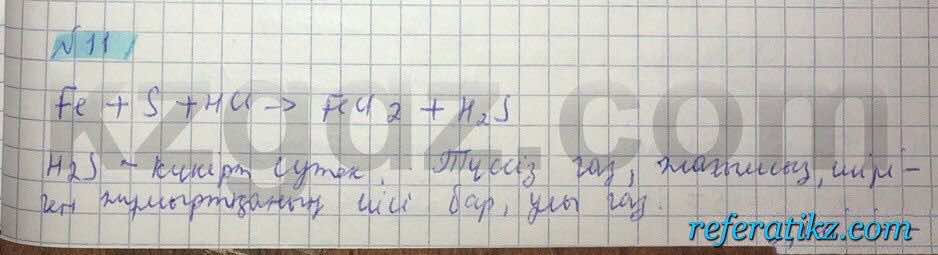 №11
Fe + S + HCl → FeCl2 + H2S
H2S - күкірт сутек. Түссіз газ, жағымсыз, шірі-
ген жұмыртқаның иісі бар, улы газ.
kzgdz.com
referatikz.com